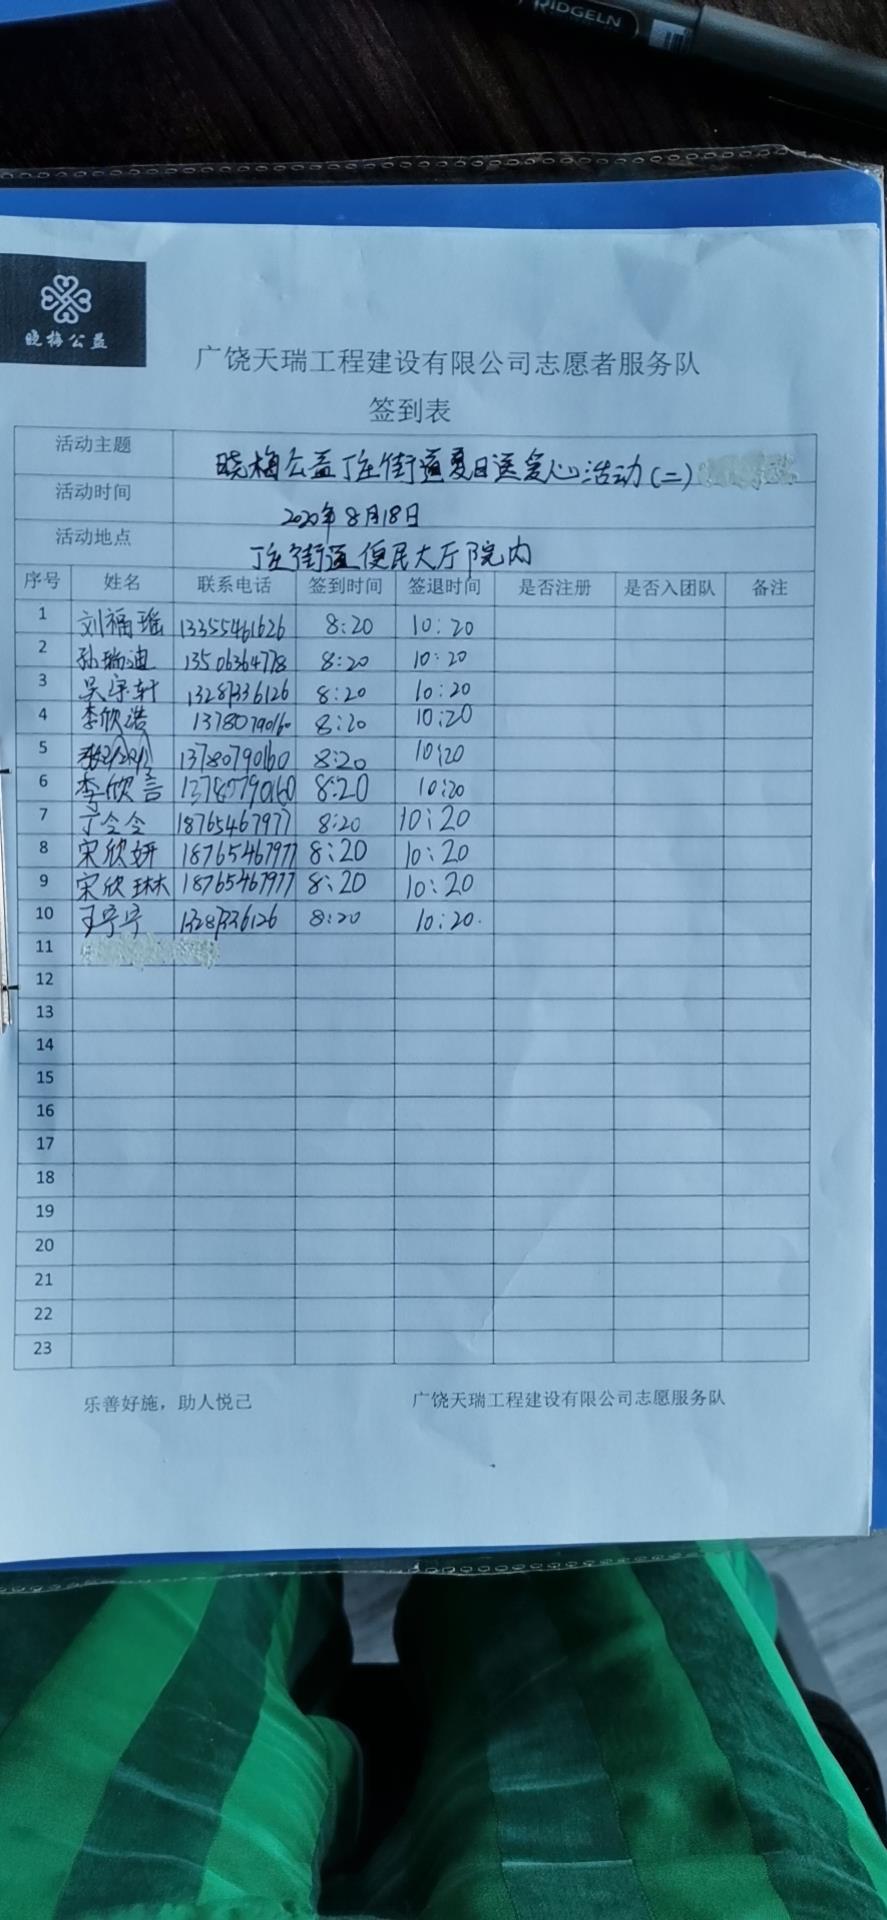 RIDGELN
晓梅公益
广饶天瑞工程建设有限公司志愿者服务队
签到表
活动主题 晓梅公益丁庄街道夏日送爱心活动(二)
活动时间 2020年8月18日
活动地点 丁庄街道便民大厅院内
序号 姓名 联系电话 签到时间 签退时间 是否注册 是否入团队 备注
1 刘福瑶 13355461626 8:20 10:20
2 孙瑞迪 13506364778 8:20 10:20
3 吴宇轩 13287336126 8:20 10:20
4 李欣浩 13780790160 8:20 10:20
5 13780790160 8:20 10:20
6 李欣言 13780790160 8:20 10:20
7 丁令令 18765467977 8:20 10:20
8 宋欣妍 18765467977 8:20 10:20
9 宋欣琳 18765467977 8:20 10:20
10 王宁宁 13287336126 8:20 10:20
11
12
13
14
15
16
17
18
19
20
21
22
23
乐善好施，助人悦己 广饶天瑞工程建设有限公司志愿服务队